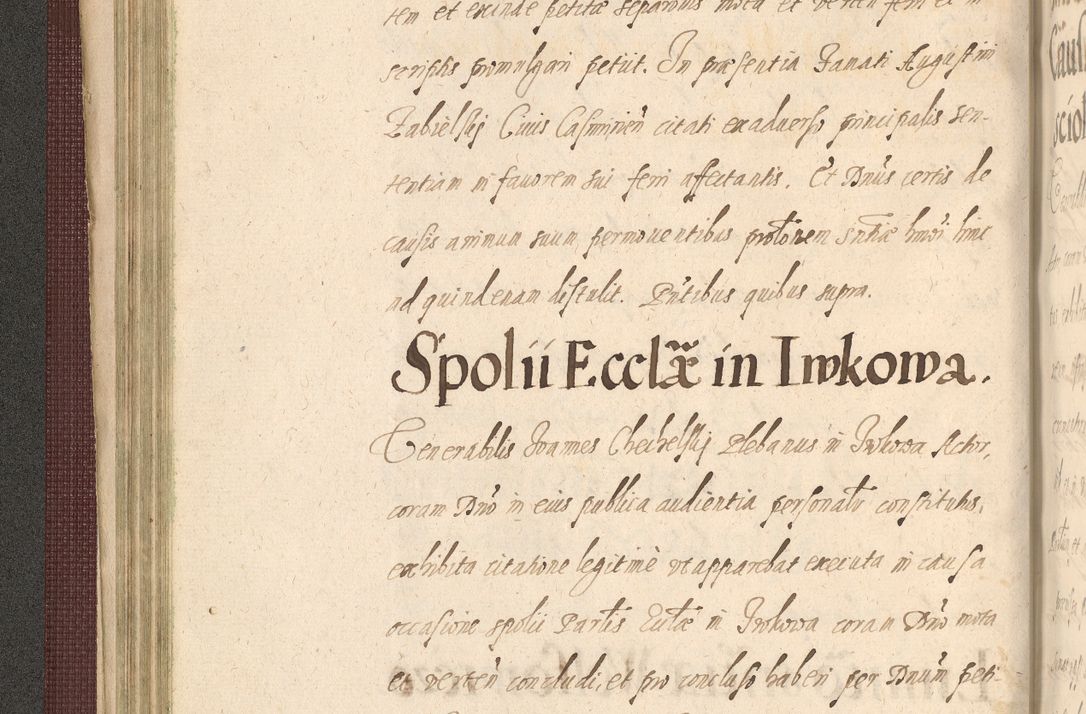 tem et exinde petitæ separonis mota et verten ferri et in
scriptis promulgari petiit. In præsentia Famati Augustini
Zabielskj Ciuis Casimirien̄ citati exaduerso principalis sen-
tentiam in fauorem sui ferri affectantis. Et Dnūs certis de
causis animum suum permouentibus prolōnem sntīæ hmōi hinc
ad quindenam distulit. Pntībus quibus supra.
Spolii Ecclæ in Iwkowa.
Venerabilis Ioannes Chechelskj Plebanus in Iwkowa Actor,
coram Dnō in eius publica audientia personalr constitutus,
exhibita citatione legitimè vt apparebat executa in causa
occasione spolii Partis Ecclæ in Iwkowa coram Dnō mota
et verten̄ concludi, et pro concluso haberi per Dnum peti-